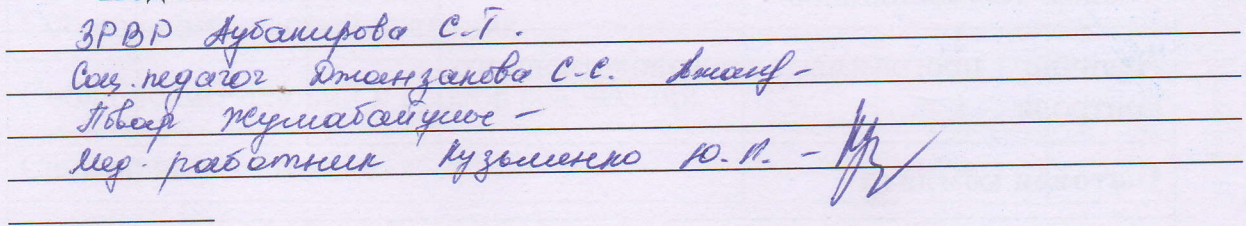 ЗРВР Аубакирова С.Т.
Соц.педагог Джанзакова С-С. Джанз-
Повар Жумабайулы -
Мед. работник Кузьменко Ю.П. -